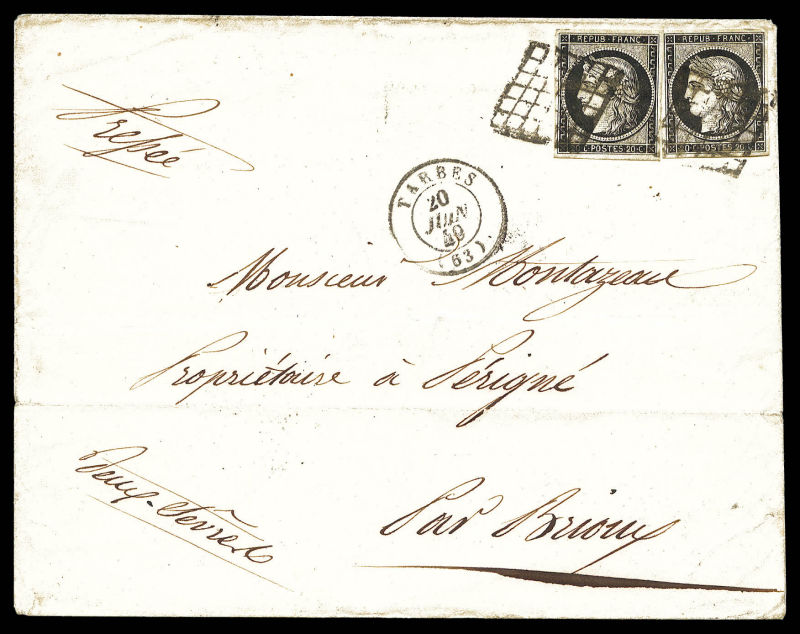 REPUB·FRANC·
REPUB·FRANC·
20·C·POSTES·20·C
20·C·POSTES·20·C
TARBES
20
JUIN
49
(63)
Monsieur Montazeau
Propriétaire à Périgné
Deux-Sèvres
Par Brioux